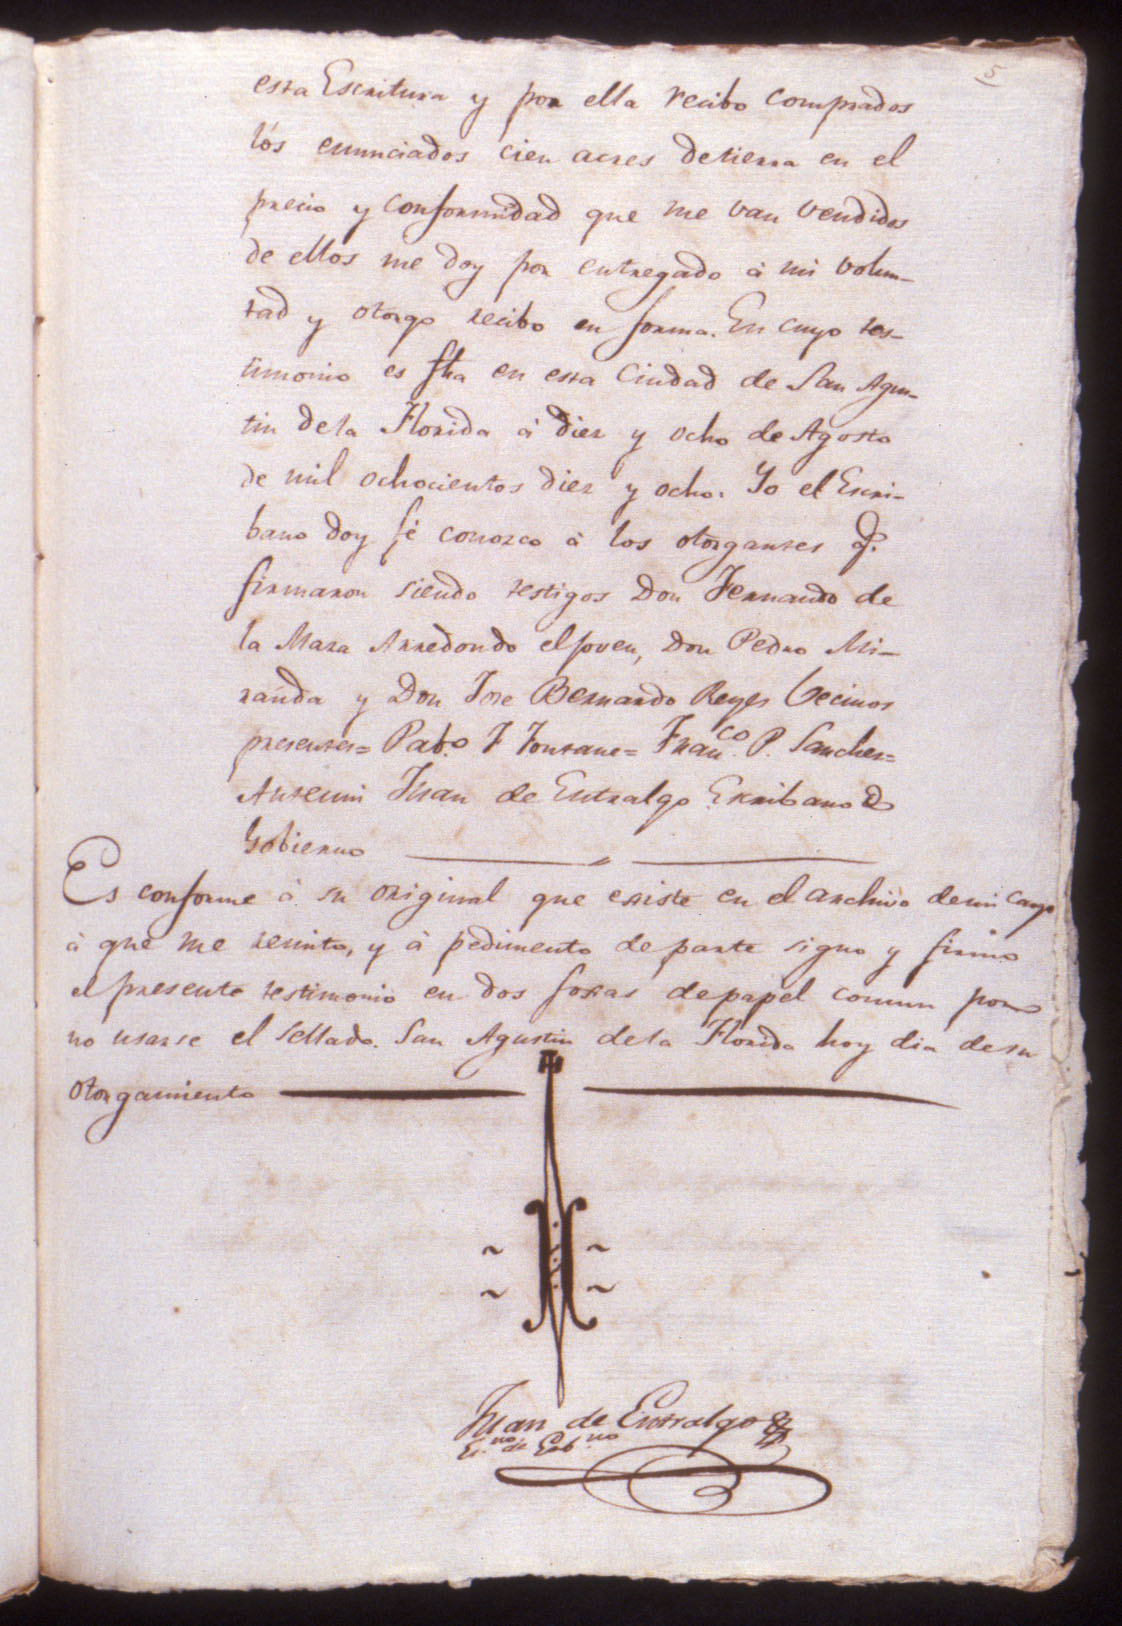 5
esta Escritura y por ella recibo comprados
los enunciados cien acres de tierra en el
precio y conformidad que me van vendidos
de ellos me doy por entregado à mi volun-
tad y otorgo recibo en forma. En cuyo tes-
timonio es fha en esta Ciudad de San Agus-
tin de la Florida à diez y ocho de Agosto
de mil ochocientos diez y ocho. Yo el Escri-
bano doy fé conozco à los otorgantes q.
firmaron siendo testigos Don Fernando de
la Maza Arredondo el joven, Don Pedro Mi-
randa y Don Jose Bernardo Reyes Vecinos
presentes= Pab.o F Fontane= Fran.co P. Sanchez=
Antemi Juan de Entralgo Escribano de
Gobierno
Es conforme à su original que existe en el archivo de mi cargo
à que me remito, y à pedimento de parte signo y firmo
el presente testimonio en dos foxas de papel comun por
no usarse el sellado. San Agustin de la Florida hoy dia de su
otorgamiento
Juan de Entralgo
Es.no de Gob.no